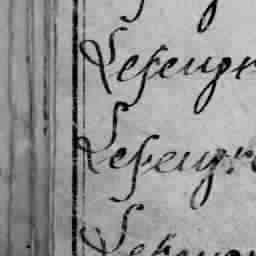 Lefeugr
Lefeugre
Lefeugr